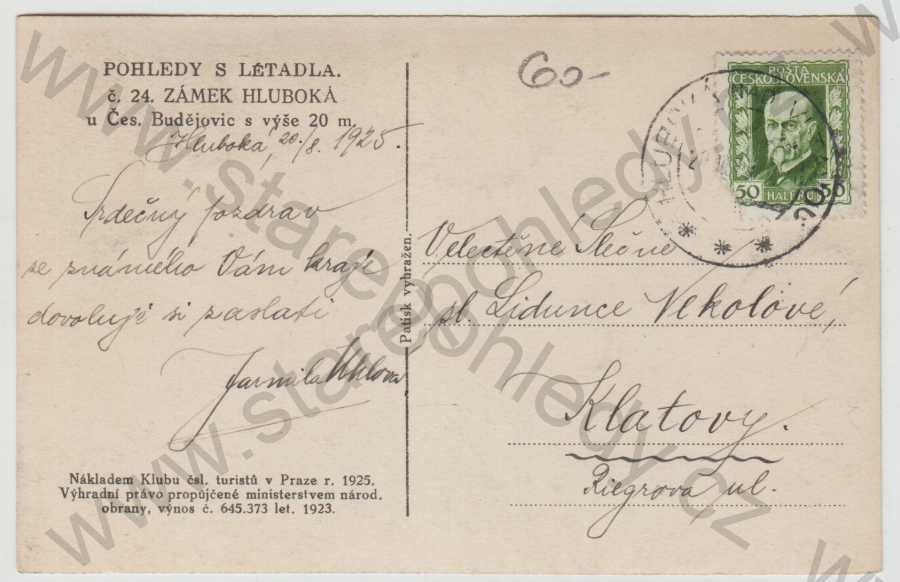 POHLEDY S LETADLA.
č. 24. ZÁMEK HLUBOKÁ
u Čes. Budějovic s výše 20 m.
Hluboká, 20./8. 1925.
Srdečný pozdrav
ze známého Vám kraje
dovoluje si zaslati
Jarmila
Nákladem Klubu čsl. turistů v Praze r. 1925.
Výhradní právo propůjčené ministerstvem národ.
obrany, výnos č. 645.373 let. 1923.
Patisk vyhražen.
60-
POŠTA
ČESKOSLOVENSKÁ
50 HALÉŘŮ 50
Velectěné Slečně
sl. Lidunce Nekolové,
Klatovy.
Riegrova ul.
www.starepohledy.cz